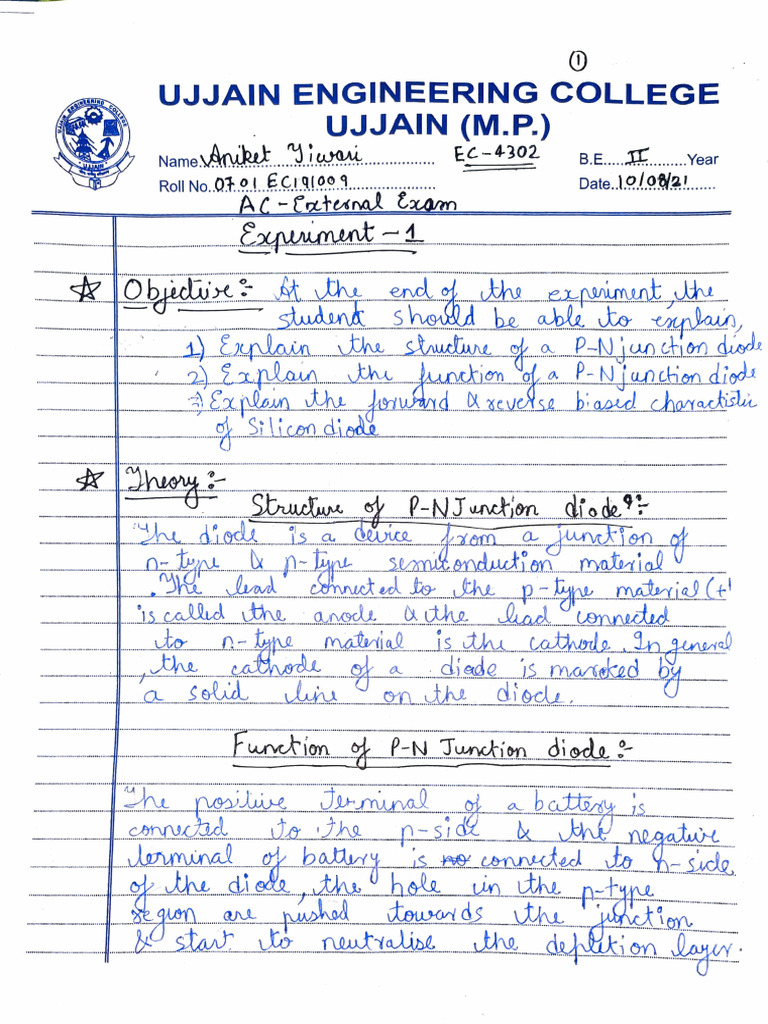 ①
UJJAIN ENGINEERING COLLEGE
UJJAIN (M.P.)
Name. Aniket Tiwari EC-4302 B.E. II Year
Roll No. 0701 EC191009 Date. 10/08/21
AC-External Exam
Experiment - 1
☆ Objective:- At the end of the experiment, the
student should be able to explain,
1) Explain the structure of a P-N junction diode
2) Explain the function of a P-N junction diode
3) Explain the forward & reverse biased charactistic
of Silicon diode
☆ Theory:-
Structure of P-N Junction diode:-
The diode is a device from a junction of
n-type & p-type semiconduction material
. The lead connected to the p-type material (+
is called the anode & the lead connected
to n-type material is the cathode. In general
, the cathode of a diode is marked by
a solid line on the diode.
Function of P-N Junction diode:-
The positive terminal of a battery is
connected to the p-side & the negative
terminal of battery is connected to n-side
of the diode, the hole in the p-type
region are pushed towards the junction
& start to neutralise the depletion layer.
UJJAIN ENGINEERING COLLEGE
UJJAIN